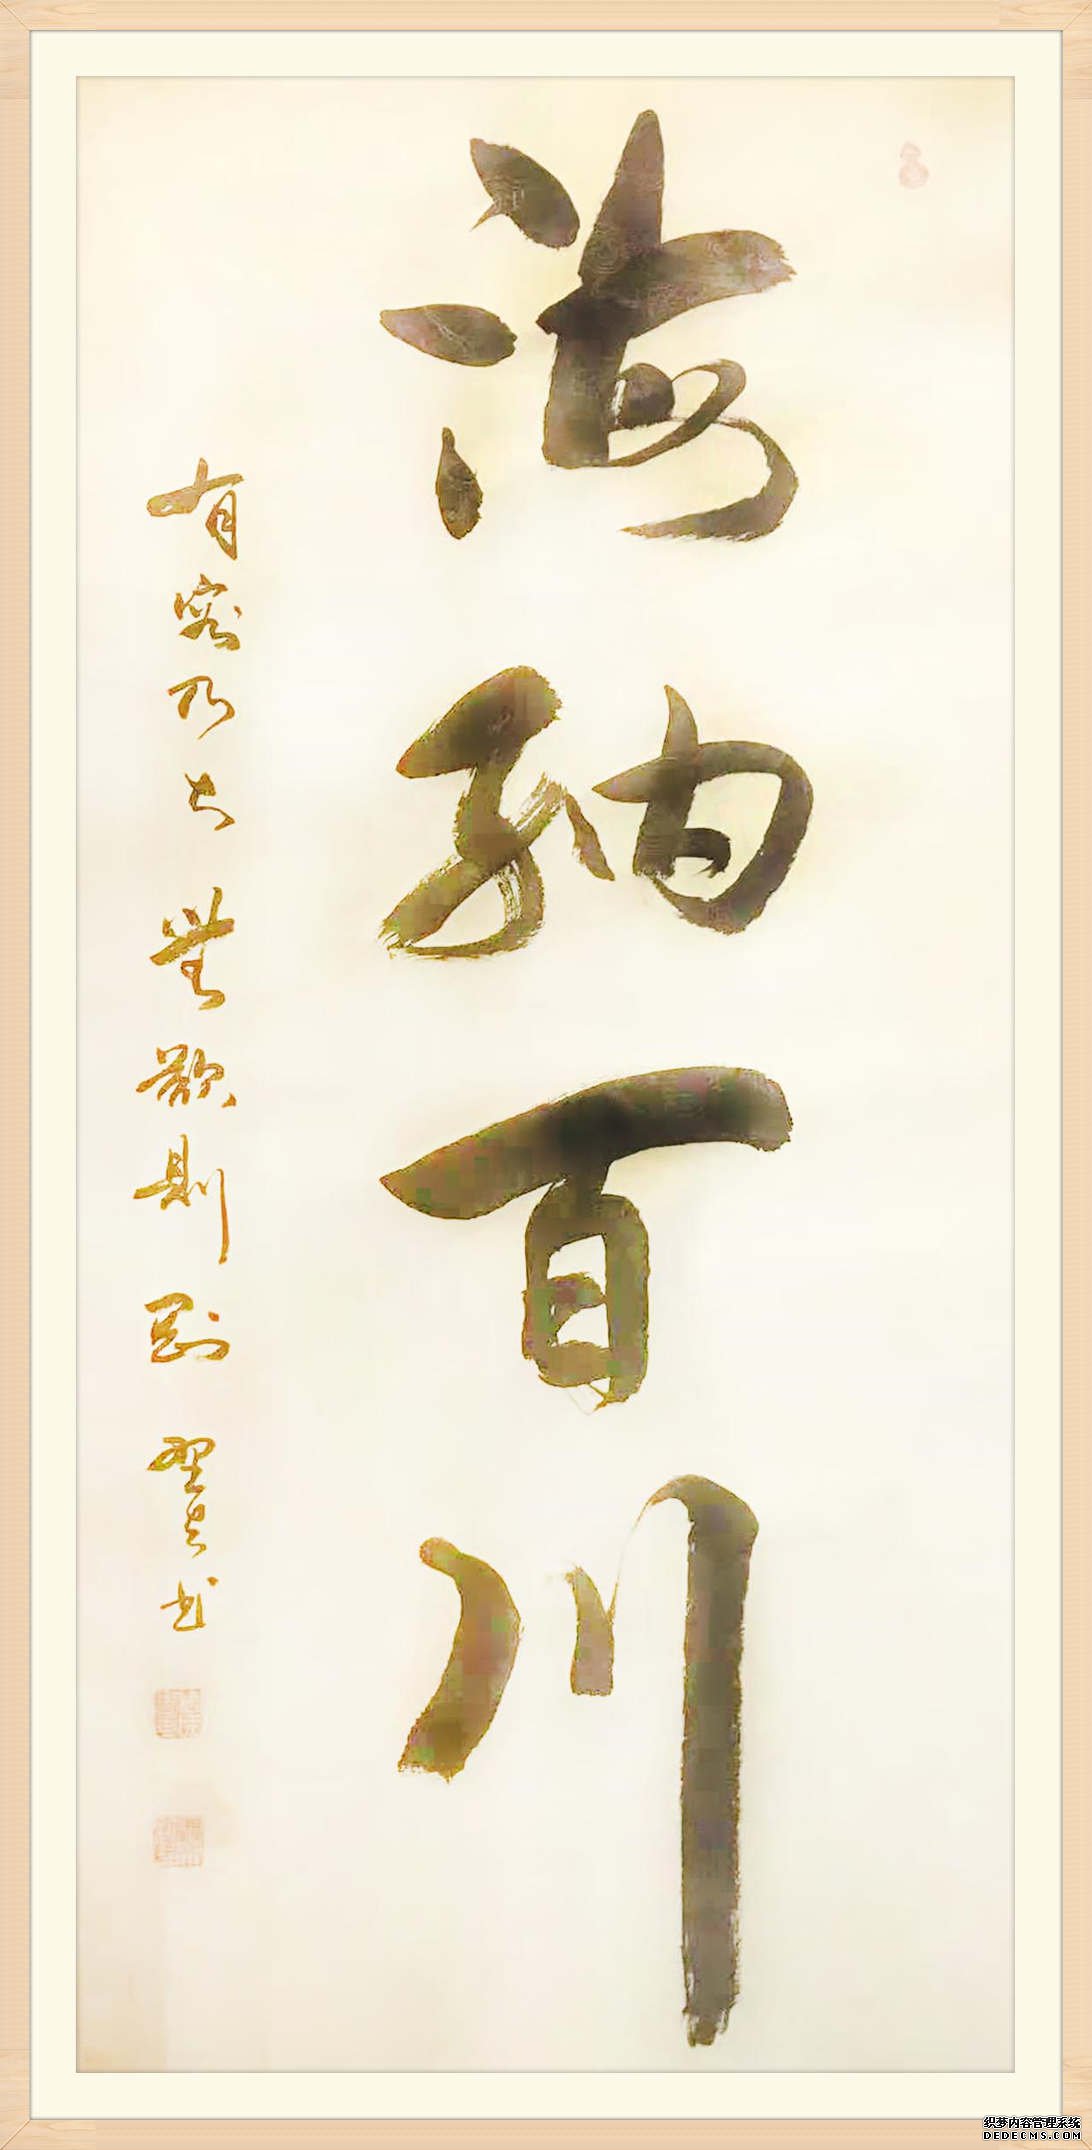 海纳百川
有容乃大 無欲则刚 翠云书
织梦内容管理系统
DEDECMS.COM